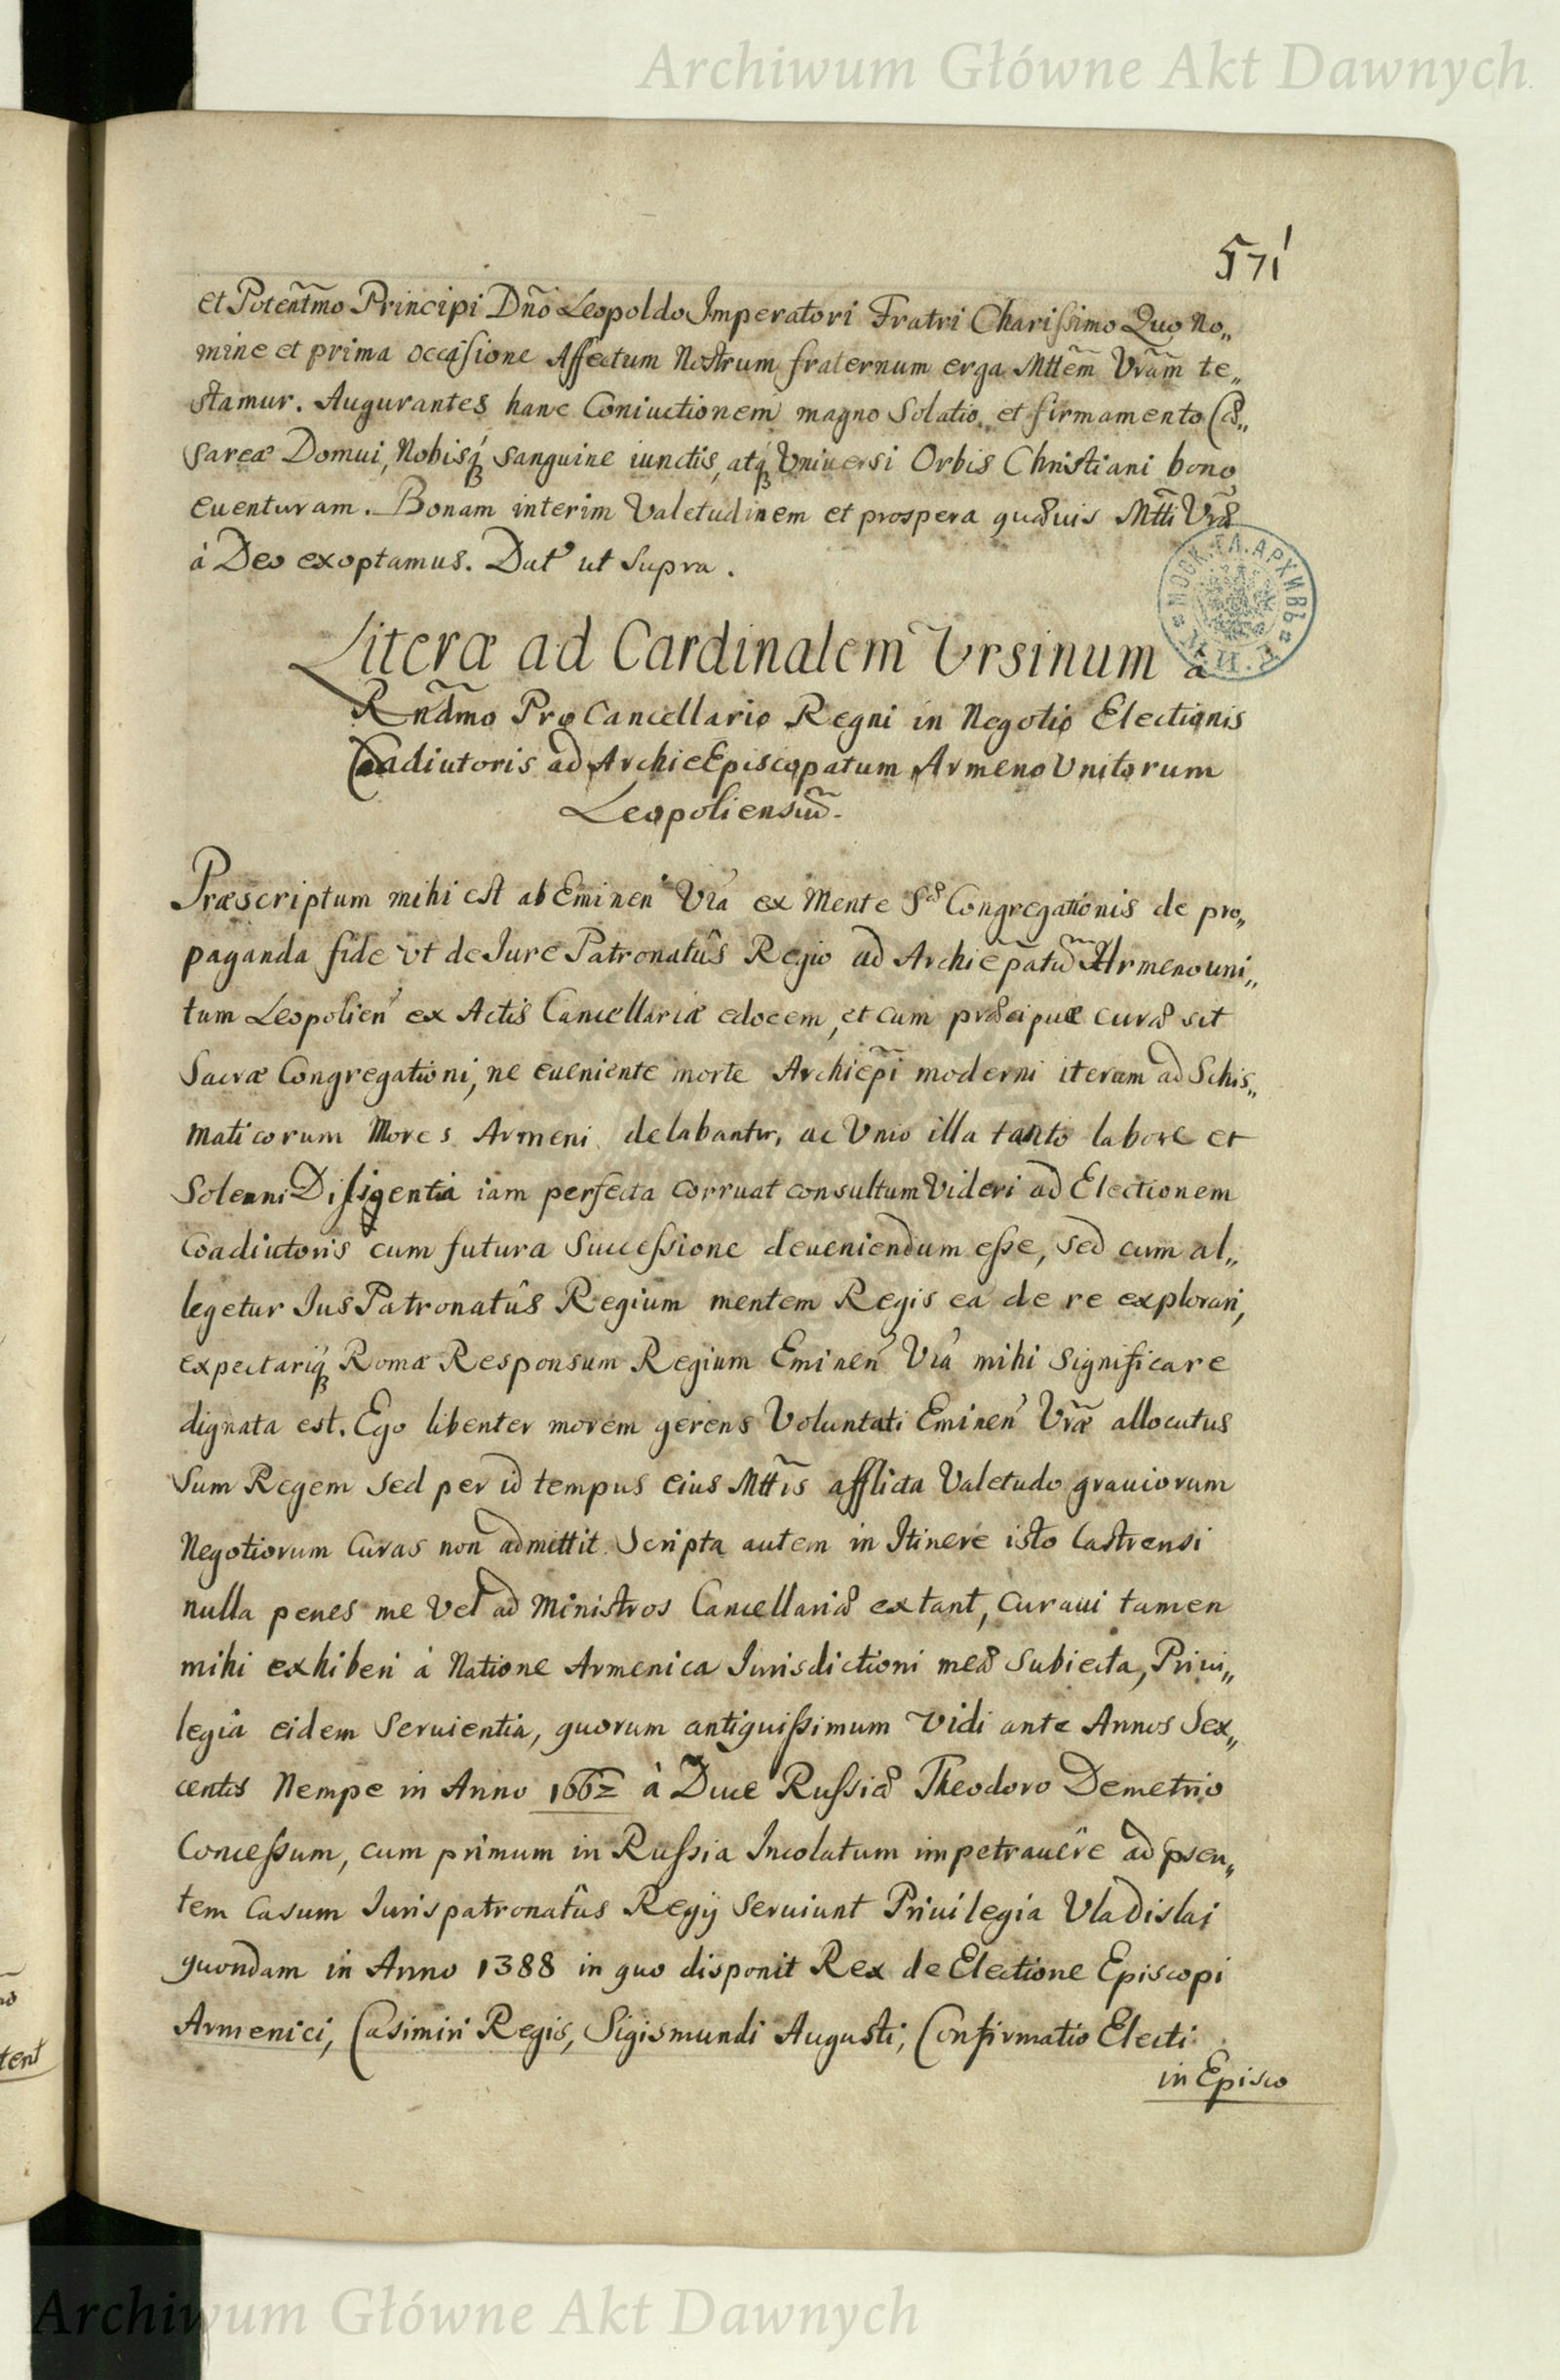 Archiwum Główne Akt Dawnych
571
et Poteñtmo Principi Dño Leopoldo Imperatori Fratri Charissimo Quo No„
mine et prima occasione Affectum Nostrum fraternum erga Mttem̃ Vram̃ te„
stamur. Augurantes hanc Coniuctionem magno Solatio, et firmamento Cæ„
sareæ Domui, Nobisq́ sanguine iunctis, atq́ Vniuersi Orbis Christiani bono
euenturam. Bonam interim Valetudinem et prospera quæuis Mtti Vræ
à Deo exoptamus. Dat' ut Supra.
МОСК. ГЛ. АРХИВЪ
М. И. Д.
Literæ ad Cardinalem Vrsinum a
Rndm̃o Pro Cancellario Regni in Negotio Electionis
Coadiutoris ad ArchieEpiscopatum Armeno Vnitorum
Leopoliensiũ.
Præscriptum mihi est ab Eminen' Vrã ex Mente Sæ Congregationis de pro„
paganda fide vt de Iure Patronatûs Regio ad Archiep̃atũ Armenouni„
tum Leopolien' ex Actis Cancellariæ edocem, et cum præcipuæ curæ sit
Sacræ Congregationi, ne eueniente morte Archiep̃i moderni iterum ad Schis„
maticorum Mores Armeni delabantur, ac Vnio illa tanto labore et
Solenni Diligentia iam perfecta corruat consultum Videri ad Electionem
Coadiutoris cum futura Successione deueniendum esse, sed cum al„
legetur Ius Patronatûs Regium mentem Regis ea de re explorari,
expectariq́ Romæ Responsum Regium Eminen' Vrã mihi significare
dignata est. Ego libenter morem gerens Voluntati Eminen' Vræ̃ allocutus
Sum Regem sed per id tempus eius Mttis̃ afflicta Valetudo grauiorum
Negotiorum Curas non admittit. Scripta autem in Itinere isto Castrensi
nulla penes me Vel ad Ministros Cancellariæ extant, curaui tamen
mihi exhiberi à Natione Armenica Iurisdictioni meæ Subiecta, Priui„
legia eidem Seruientia, quorum antiquissimum Vidi ante Annos Sex„
centis Nempe in Anno 1662 à Duce Russiæ Theodoro Demetrio
Concessum, cum primum in Russia Incolatum impetrauêre ad p̃sen„
tem Casum Iurispatronatûs Regij Seruiunt Priuilegia Vladislai
quondam in Anno 1388 in quo disponit Rex de Electione Episcopi
Armenici, Casimiri Regis, Sigismundi Augusti, Confirmatio Electi
in Episco
tent
Archiwum Główne Akt Dawnych